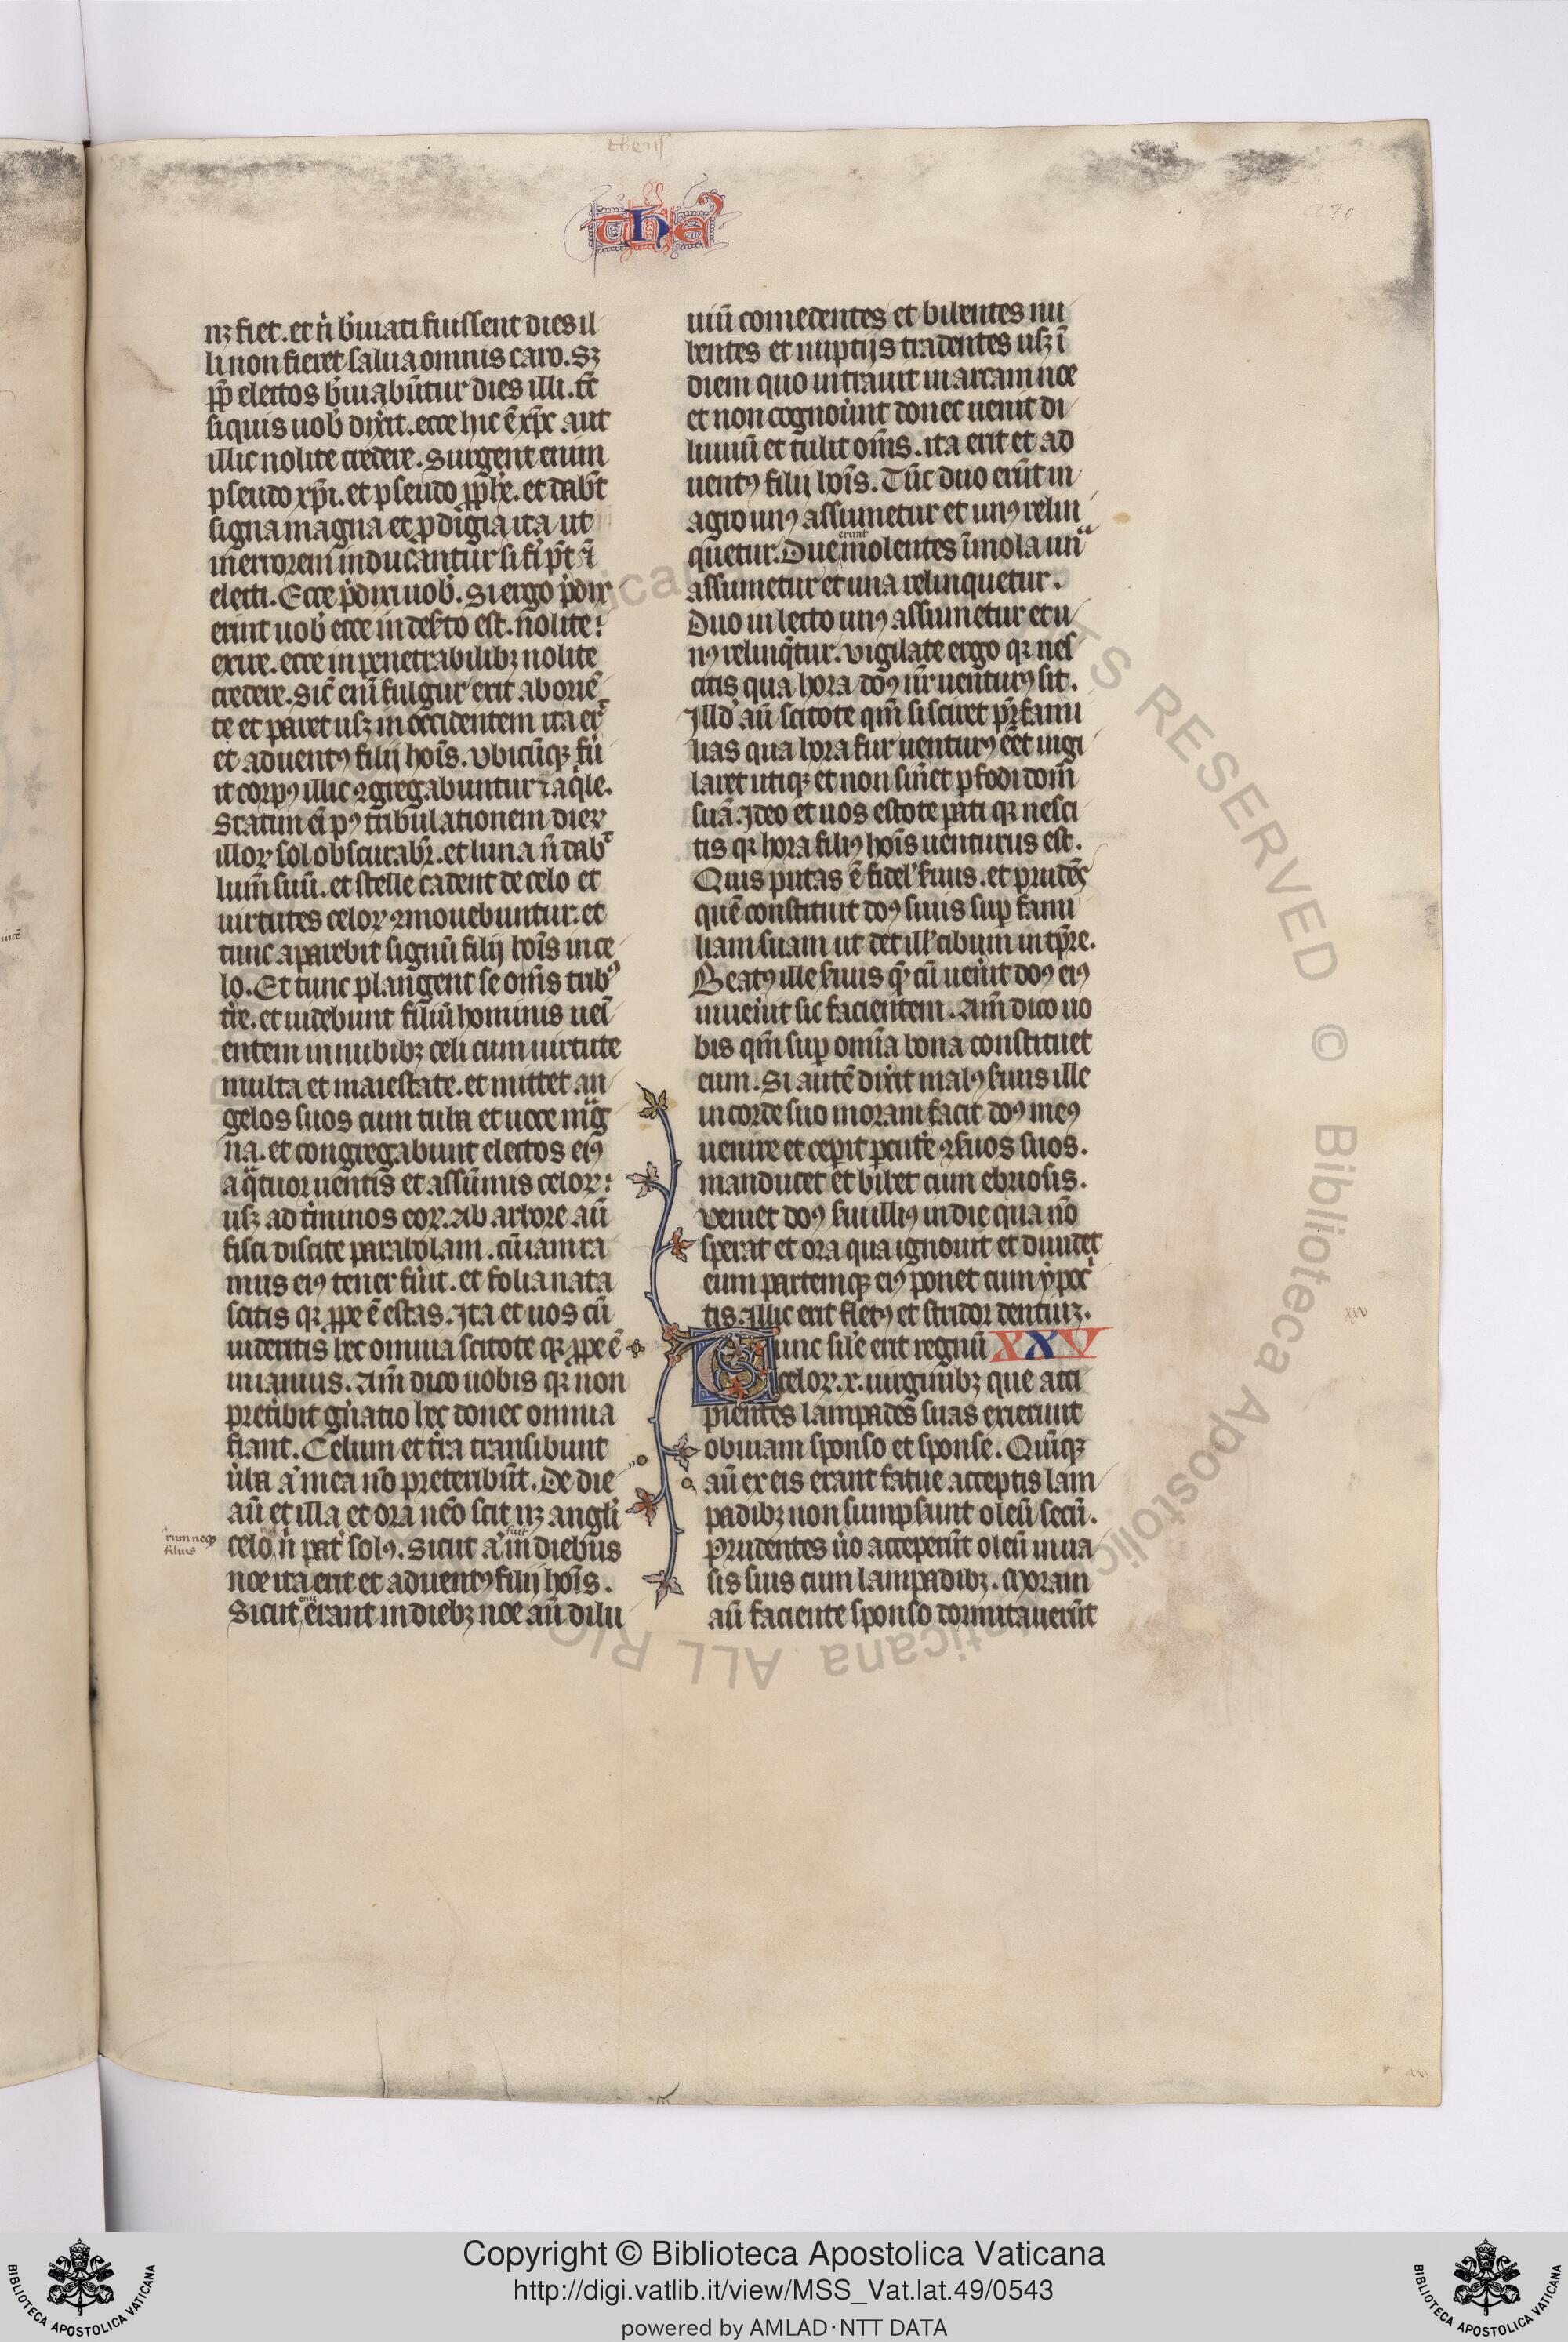 theus
THE
270
nꝫ fiet. et ñ b̃uiati fuissent dies il
li non fieret salua omnis caro. Sꝫ
ꝓpẽ electos b̃uiabũtur dies illi. tc̃
siquis uob̾ dix̾it. ecce hic ẽ xp̃c aut
illic nolite credere. Surgent enim
pseudo xp̃i. et pseudo ꝓph̾e. et dab̾t
signa magna et ꝓdigia ita ut
in errorem inducantur si fi̾ põt ꝫ̃
electi. Ecce p̾dixi uob̾. Si ergo p̾dix
erint uob̾ ecce in deẜto est. nolite
exire. ecce in penetrabilibꝫ nolite
credere. Sic̾ enĩ fulgur exit ab oriẽ
te et paret usꝫ in occidentem ita er̾
et aduentꝰ filij hoĩs. Vbicũqꝫ fũ
it corpꝰ illic ꝯgregabuntur ⁊ aq̾le.
Statim eñ pꝰ tribulationem dieꝝ
illoꝝ sol obscurabr̃. et luna ñ dab̾
lum̃ suũ. et stelle cadent de celo et
uirtutes celoꝝ ꝯmouebuntur. et
tunc aparebit signũ filij hoĩs in ce
lo. Et tunc plangent se om̃s tribꝰ
tr̾e. et uidebunt filiũ hominis uel̃
entem in nubibꝫ celi cum uirtute
multa et maiestate. et mittet an
gelos suos cum tuba et uoce mag
na. et congregabunt electos eiꝰ
a q̾tuor uentis et a sũmis celoꝝ
usꝫ ad t̾minos eoꝝ. Ab arbore aũ
fisci discite parabolam. cũ iam ra
mus eiꝰ tener fũit. et folia nata
scitis qꝛ ꝓpe ẽ estas. Ita et uos cũ
uideritis hec omnia scitote qꝛ ꝓpe ẽ
in ianuis. Am̃ dico uobis qꝛ non
pret̾ibit gñatio hec donec omnia
fiant. Celum et t̾ra transibunt
ũba aũ mea nõ preteribũt. De die
aũ et illa et ora nẽo scit nꝫ angli̾
rum neqꝫ
filius
celo ñ pat̾ solꝰ. Sicut aũ in diebus
fuit
noe ita erit et aduentꝰ filij hoĩs.
Sicut erant in diebꝫ noe añ dilu
eni
uiũ comedentes et bibentes nu
bentes et nuptijs tradentes usꝫ ĩ
diem quo intrauit in arcam noe
et non cognoũunt donec uenit di
luuiũ et tulit om̃s. ita erit et ad
uentꝰ filij hoĩs. Tũc duo erũt in
agro unꝰ assumetur et unꝰ relin
quetur. Due molentes ĩ mola un̾
erunt
assumetur et una relinquetur.
Duo in lecto unꝰ assumetur et u
nꝰ relinq̃tur. Vigilate ergo qꝛ nes
citis qua hora dõꝰ ur̃ uenturꝰ sit.
Illd̾ aũ scitote qm̃ si sciret pr̃ fami
lias qua hora fur uenturꝰ eẽt uigi
laret utiqꝫ et non sin̾et ꝑfodi dom̃
suã. Ideo et uos estote pati qꝛ nesci
tis qꝛ hora filiꝰ hoĩs uenturus est.
Quis putas ẽ fidel̾ ẜuus. et prudẽs
quẽ constituit dõꝰ suus suꝑ fami
liam suam ut det ill̾ cibum in tp̃re.
Beatꝰ ille ẜuus qẽ cũ ueñit dõꝰ eiꝰ
inueñit sic facientem. Am̃ dico uo
bis qm̃ suꝑ omĩa bona constituet
eum. Si autẽ dix̾it malꝰ ẜuus ille
in corde suo moram facit dõꝰ meꝰ
uenire et cepit ꝑcut̾e ꝯẜuos suos.
manducet et bibet cum ebriosis.
Veniet dõꝰ ẜui illiꝰ in die qua nõ
sperat et ora qua ignorat et diuidet
eum partemqꝫ eiꝰ ponet cum ypoc̾
tis. Illic erit fletꝰ et stridor dentiuꝫ.
Tunc sil̾e erit regnũ XXV
xiv
celoꝝ. x. uirginibꝫ que acci
pientes lampades suas exierunt
obuiam sponso et sponse. Quĩqꝫ
aũ ex eis erant fatue acceptis lam
padibꝫ non sumpẜunt oleũ secũ.
Prudentes ũo acceperũt oleũ in ua
sis suis cum lampadibꝫ. Moram
aũ faciente sponso dormitauerũt
Copyright © Biblioteca Apostolica Vaticana
http://digi.vatlib.it/view/MSS_Vat.lat.49/0543
powered by AMLAD·NTT DATA
BIBLIOTECA APOSTOLICA VATICANA
BIBLIOTECA APOSTOLICA VATICANA